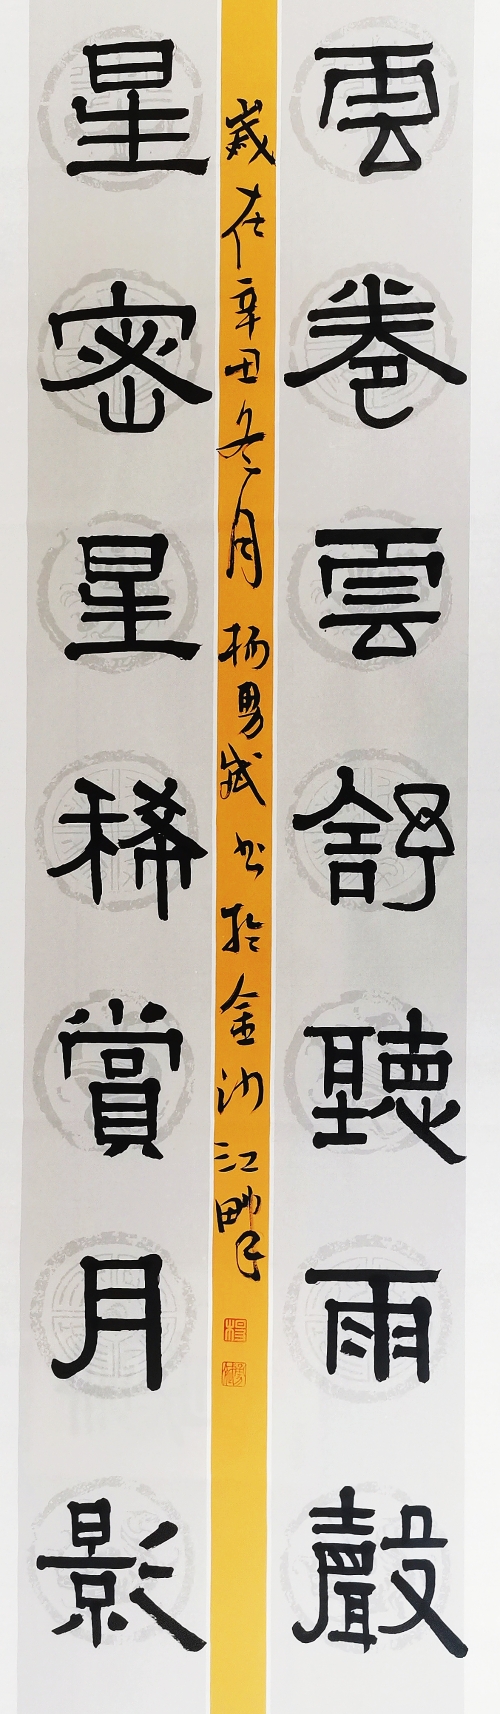 雲卷雲舒聽雨聲
星密星稀賞月影
歲在辛丑冬月杨勇斌书於金沙江畔